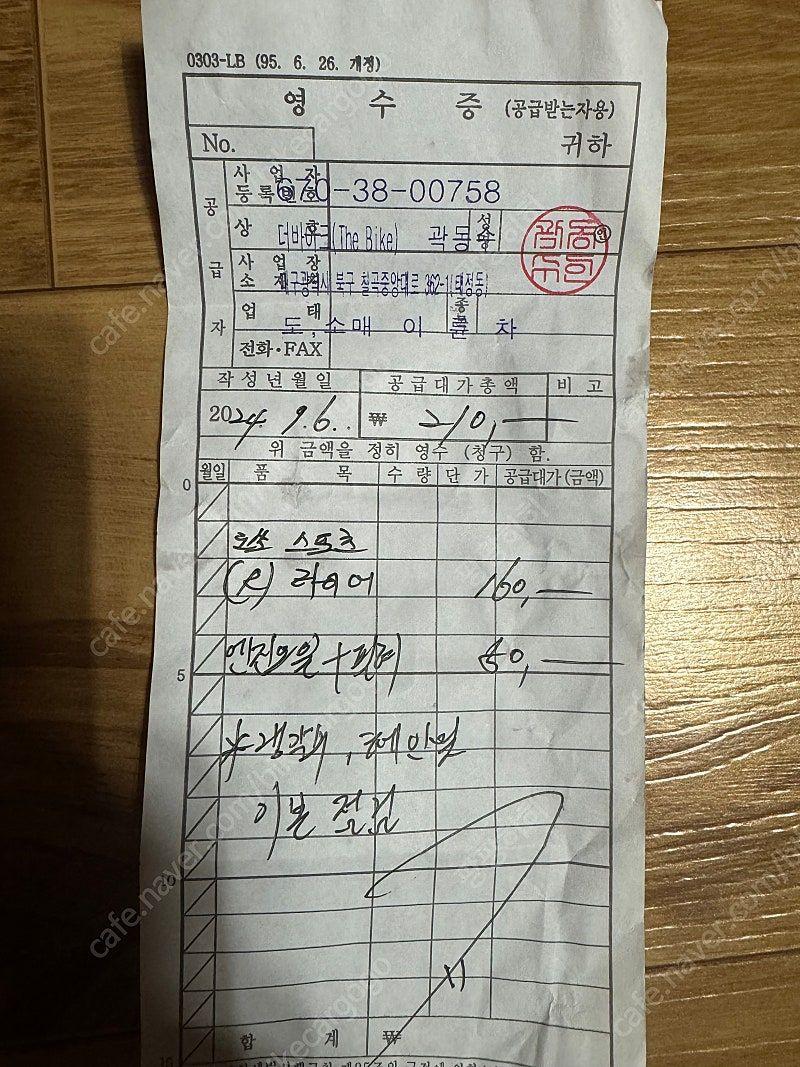 0303-LB (95. 6. 26. 개정)
영 수 증 (공급받는자용)
No. 귀하
공급자
사업자등록번호 670-38-00758
상호 더바이크(The Bike) 성명 곽동
사업장소재지 대구광역시 북구 칠곡중앙대로 362-1(태전동)
업태 도,소매 종목 이륜차
전화·FAX
작성년월일 공급대가총액 비고
2024. 9. 6. ₩ 210,—
위 금액을 정히 영수 (청구) 함.
월일 품목 수량 단가 공급대가(금액)
0
스포츠
(R) 타이어 160,—
엔진오일+필터 50,—
5
*냉각수,
기본 점검
10
합계 ₩
15
cafe.naver.com